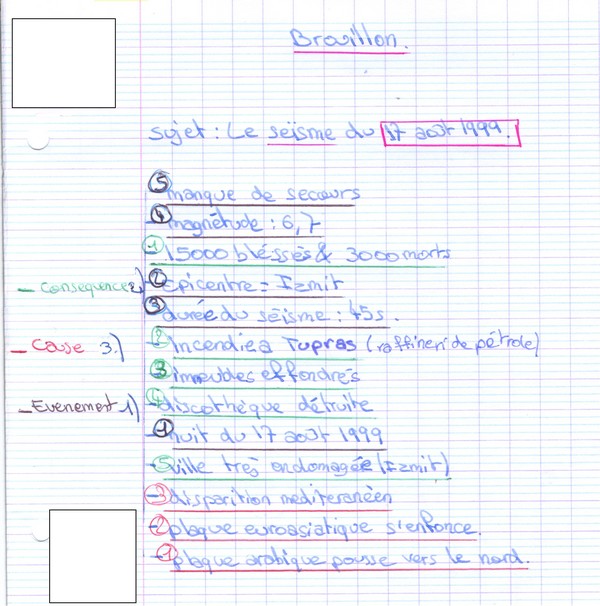 Brouillon.
sujet : Le seïsme du 17 août 1999.
⑤ manque de secours
④ magnétude : 6,7
① 15000 bléssés & 3000 morts
- Conséquence 2) ② Epicentre = Izmit
③ durée du séisme : 45s.
- Cause 3.) ② Incendie a Tupras (raffineri de pétrole)
③ immeubles effondrés
- Evenement 1) ④ discothèque détruite
① nuit du 17 août 1999
- ⑤ ville très endomagée (Izmit)
- ③ disparition mediteranéen
- ② plaque euroasiatique s'enfonce.
- ① plaque arabique pousse vers le nord.